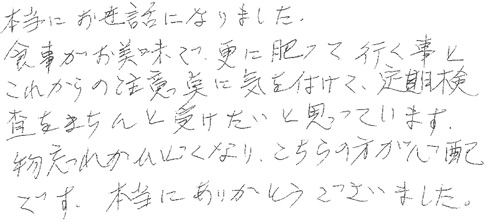 本当にお世話になりました.
食事がお美味で、更に肥って行く事と
これからの注意点に気を付けて、定期検
査をきちんと受けたいと思っています.
物忘れがひどくなり、こちらの方が心配
です. 本当にありがとうございました。